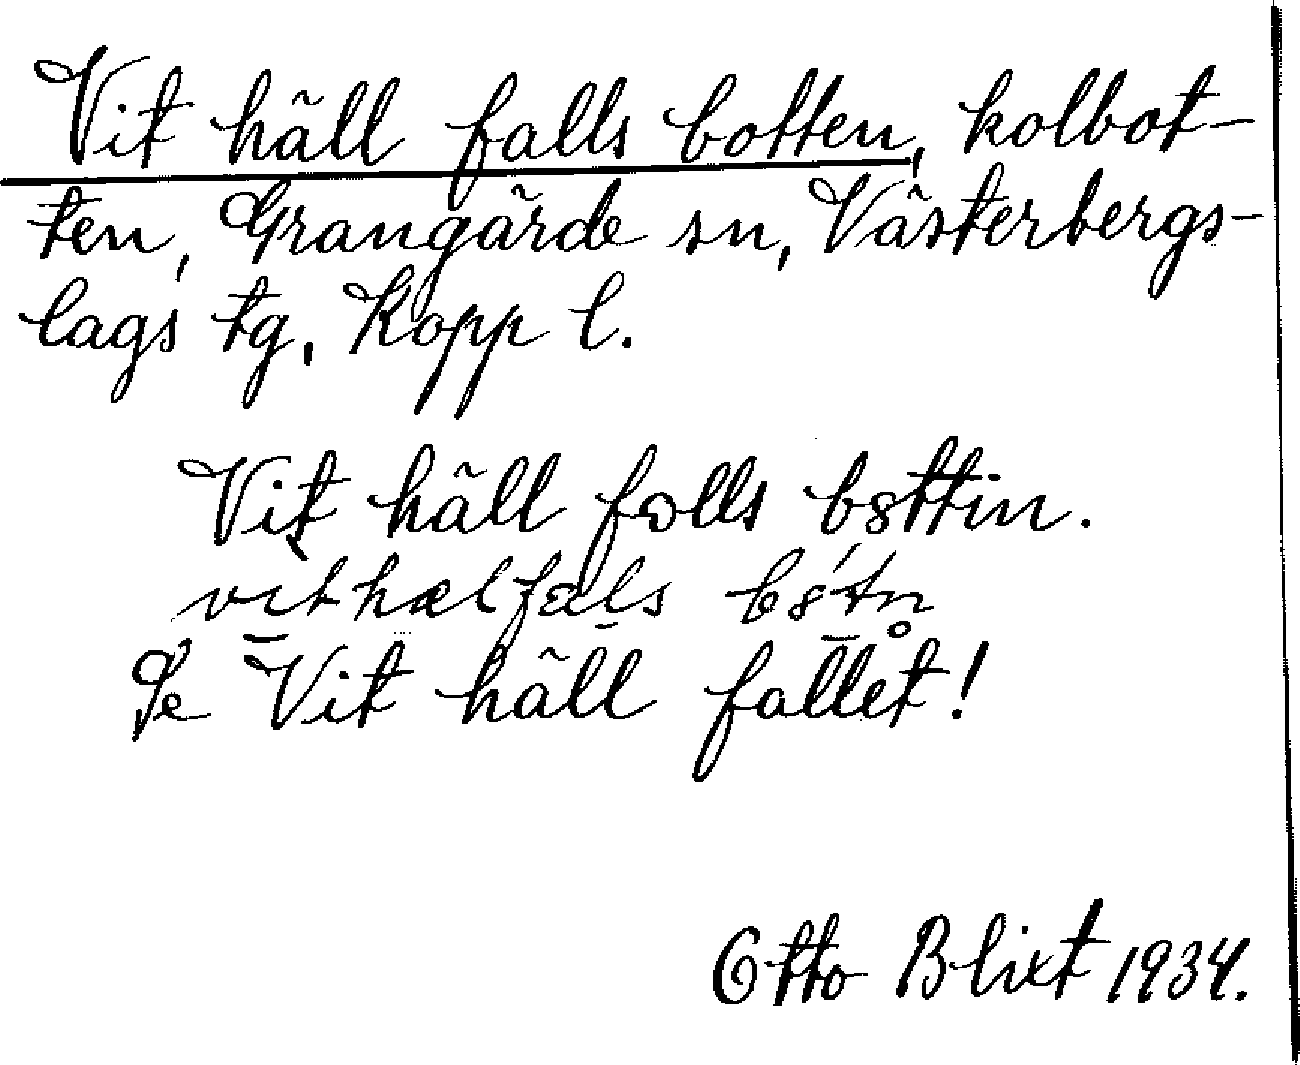 Vit häll falls botten, kolbot-
ten, Grangärde sn, Västerbergs-
lags tg, Kopp l.
Vit häll falls bøttin.
vıt hælfals bøtn̥
Se Vit häll fallet!
Otto Blixt 1934.